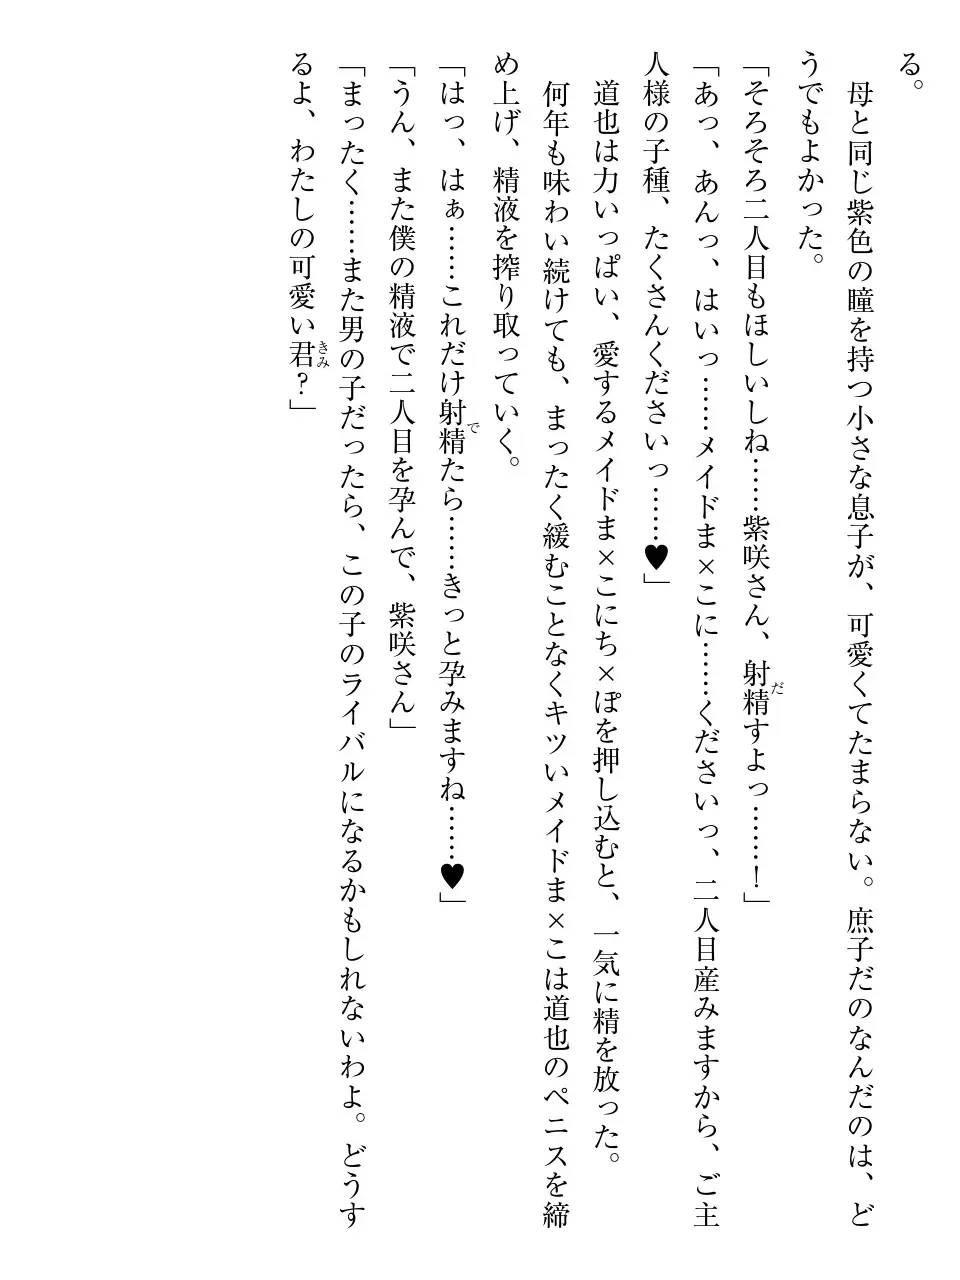 る。
母と同じ紫色の瞳を持つ小さな息子が、可愛くてたまらない。庶子だのなんだのは、ど
うでもよかった。
だ
「そろそろ二人目もほしいしね……紫咲さん、射精すよっ……！」
「あっ、あんっ、はいっ……メイドま×こに……くださいっ、二人目産みますから、ご主
人様の子種、たくさんくださいっ……♥」
道也は力いっぱい、愛するメイドま×こにち×ぽを押し込むと、一気に精を放った。
何年も味わい続けても、まったく緩むことなくキツいメイドま×こは道也のペニスを締
め上げ、精液を搾り取っていく。
で
「はっ、はぁ……これだけ射精たら……きっと孕みますね……♥」
「うん、また僕の精液で二人目を孕んで、紫咲さん」
「まったく……また男の子だったら、この子のライバルになるかもしれないわよ。どうす
きみ
るよ、わたしの可愛い君？」